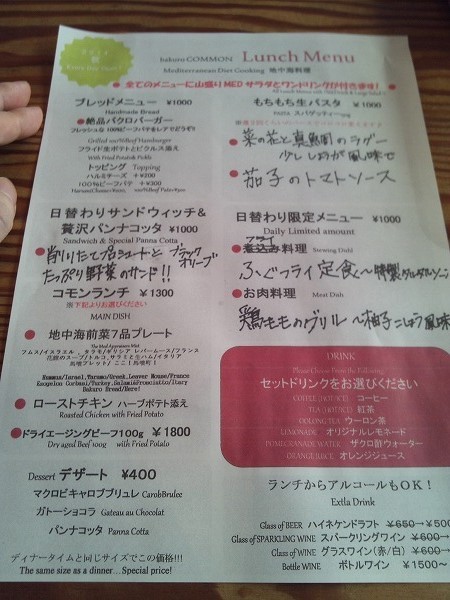 bakuro COMMON Lunch Menu
Mediterranean Diet Cooking 地中海料理
●全てのメニューに山盛りMEDサラダとワンドリンクが付きます!
ブレッドメニュー ¥1000
Handmade Bread
●絶品バクロバーガー
Grilled 100%Beef Hamburger
フライド生ポテトとピクルス添え
With Fried Potato& Pickle
トッピング Topping
ハルミチーズ +¥200
100%ビーフパテ +¥300
日替わりサンドウィッチ&
贅沢パンナコッタ ¥1000
Sandwich & Special Panna Cotta
●削りたて生ジュートと ブラックオリーブ
たっぷり野菜のサンド!!
コモンランチ ¥1300
※下記よりお選びください
MAIN DISH
●地中海前菜7品プレート
フムス/イスラエル 、タラモ/ギリシア レバームース/フランス
Hummus/Israel,Taramo/Greek,Leaver Mouse/France
Bakuro Bread/Here!
●ローストチキン ハーブポテト添え
Roasted Chicken with Fried Potato
●ドライエージングビーフ100g ¥1800
Dry aged Beef 100g with Fried Potato
Dessert デザート ¥400
マクロビキャロブブリュレ CarobBrulee
ガトーショコラ Gateau au Chocolat
パンナコッタ Panna Cotta
ディナータイムと同じサイズでこの価格!!!
The same size as a dinner…Special price!
もちもち生パスタ ¥1000
PASTA スパゲッティー120g
●菜の花と真鯛のラグー
少ししょうが風味で
●茄子のトマトソース
日替わり限定メニュー ¥1000
Daily Limited amount
●フライ
煮込み料理 Stewing Dishl
ふぐフライ定食〜特製タルタルソース
●お肉料理 Meat Dish
鶏もものグリル 〜柚子こしょう風味
DRINK
Please Choose From the Following
セットドリンクをお選びください
COFFEE (HOT/ICE) コーヒー
TEA (HOT/ICE) 紅茶
OOLONG TEA ウーロン茶
LEMONADE オリジナルレモネード
POMEGRANATE WATER ザクロ酢ウォーター
ORANGE JUICE オレンジジュース
ランチからアルコールもOK!
Extla Drink
Glass of BEER ハイネケンドラフト ¥650→¥500
Glass of SPARKLING WINE スパークリングワイン ¥600→
Glass of WINE グラスワイン(赤/白) ¥600→
Bottle WINE ボトルワイン ¥1500〜